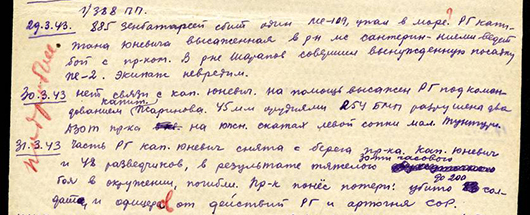 1/388 ПП.
29.3.43. 885 зенбатареей сбит один Ме-109, упал в море. ? РГ капи-
тана Юневича высаженная в р-н мс ведет
бой с пр-ком. В р-не Шарапов совершил вынужденную посадку
Пе-2. Экипаж невредим.
30.3.43 нет связи с кап. Юневич. На помощь высажен РГ под коман-
дованием капит. Баринова. 45 мм орудиями 254 БМП разрушена два
ДЗОТ пр-ка на южн. скатах левой сопки мал. Тунтури.
31.3.43 Часть РГ кап. Юневич снята с берега пр-ка. Кап. Юневич
и 42 разведчиков, в результате тяжелого часового
боя в окружении, погибли. Пр-к понёс потери: убито до 200 сол-
дата, и офицера от действий РГ и артогня СОР.
подробнее